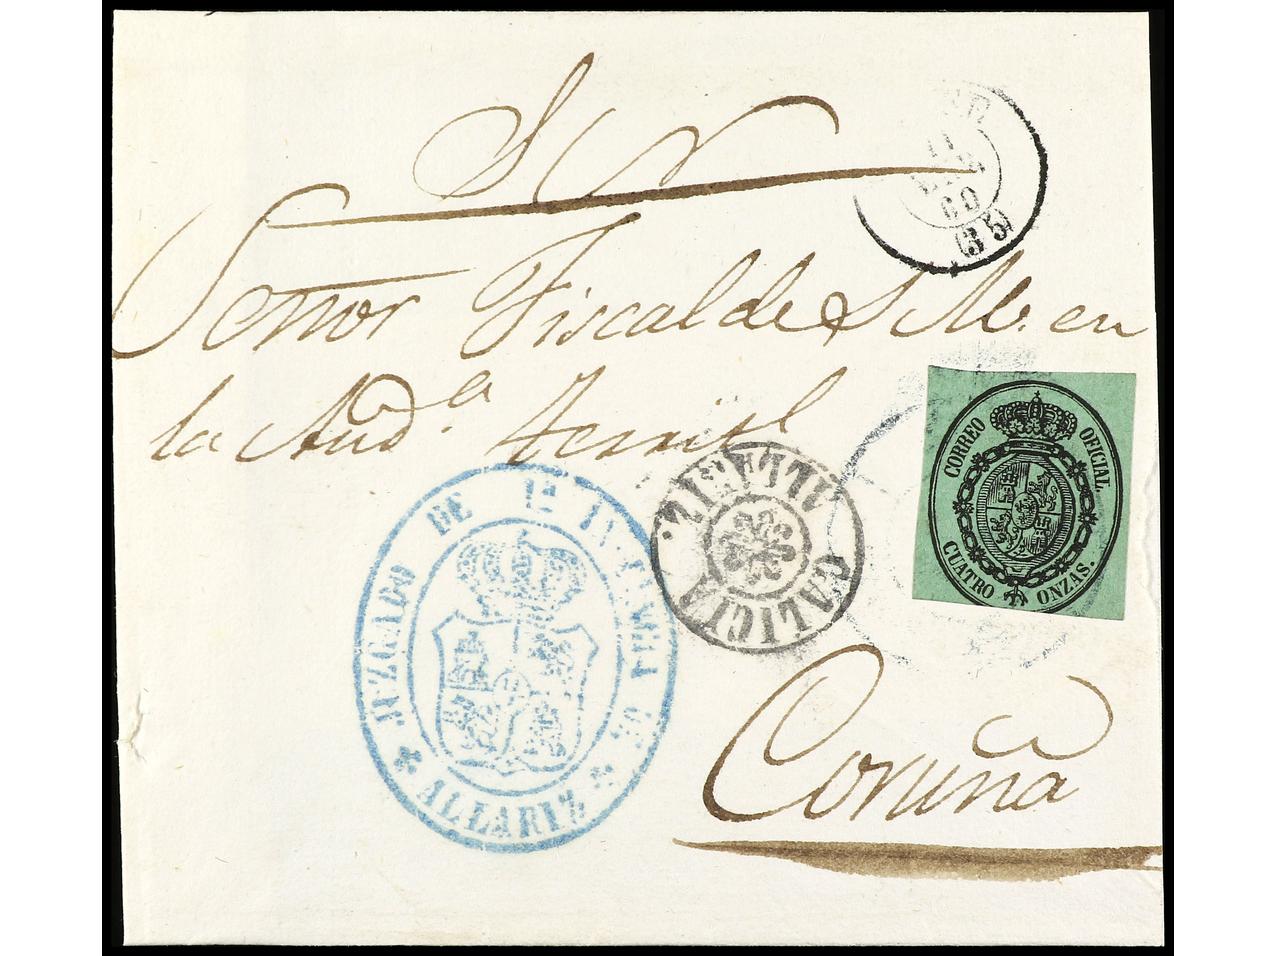 S N
Señor Fiscal de S. M. en
la Aud.ª Territl
Coruña
CORREO OFICIAL.
CUATRO ONZAS.
JUZGADO DE 1ª INSTANCIA DE
ALLARIZ
ALLARIZ.
GALICIA
60
(35)